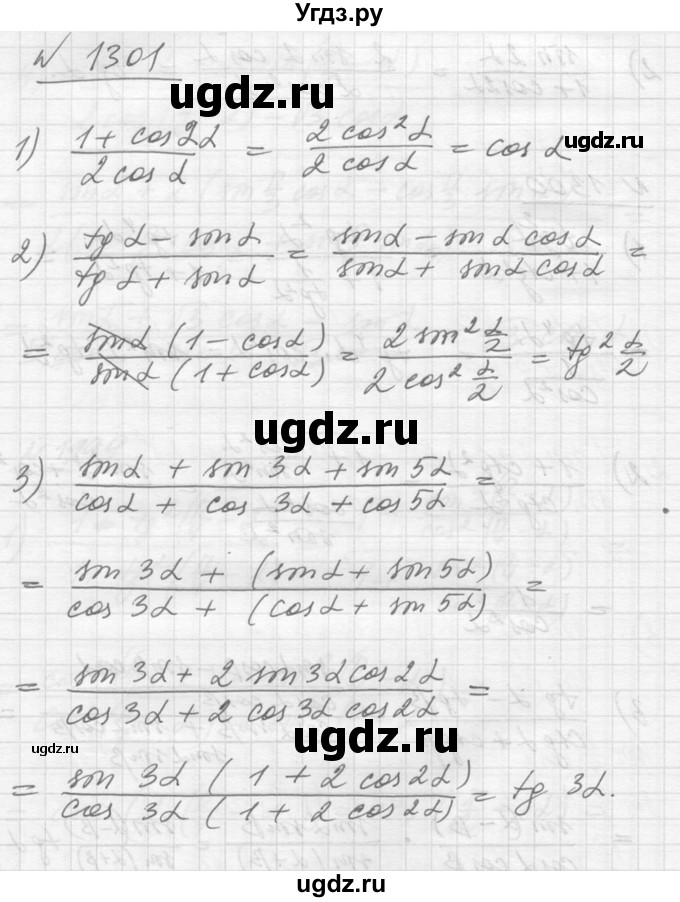 Угдз.ру
№ 1301
ugdz.ru
ugdz.ru
1) (1 + cos 2α)/(2 cos α) = (2 cos²α)/(2 cos α) = cos α
2) (tg α − sin α)/(tg α + sin α) = (sin α − sin α cos α)/(sin α + sin α cos α) =
= (sin α (1 − cos α))/(sin α (1 + cos α)) = (2 sin² α/2)/(2 cos² α/2) = tg² α/2
ugdz.ru
3) (sin α + sin 3α + sin 5α)/(cos α + cos 3α + cos 5α) =
ugdz.ru
= (sin 3α + (sin α + sin 5α))/(cos 3α + (cos α + sin 5α)) =
= (sin 3α + 2 sin 3α cos 2α)/(cos 3α + 2 cos 3α cos 2α) =
ugdz.ru
ugdz.ru
= (sin 3α (1 + 2 cos 2α))/(cos 3α (1 + 2 cos 2α)) = tg 3α.
ugdz.ru